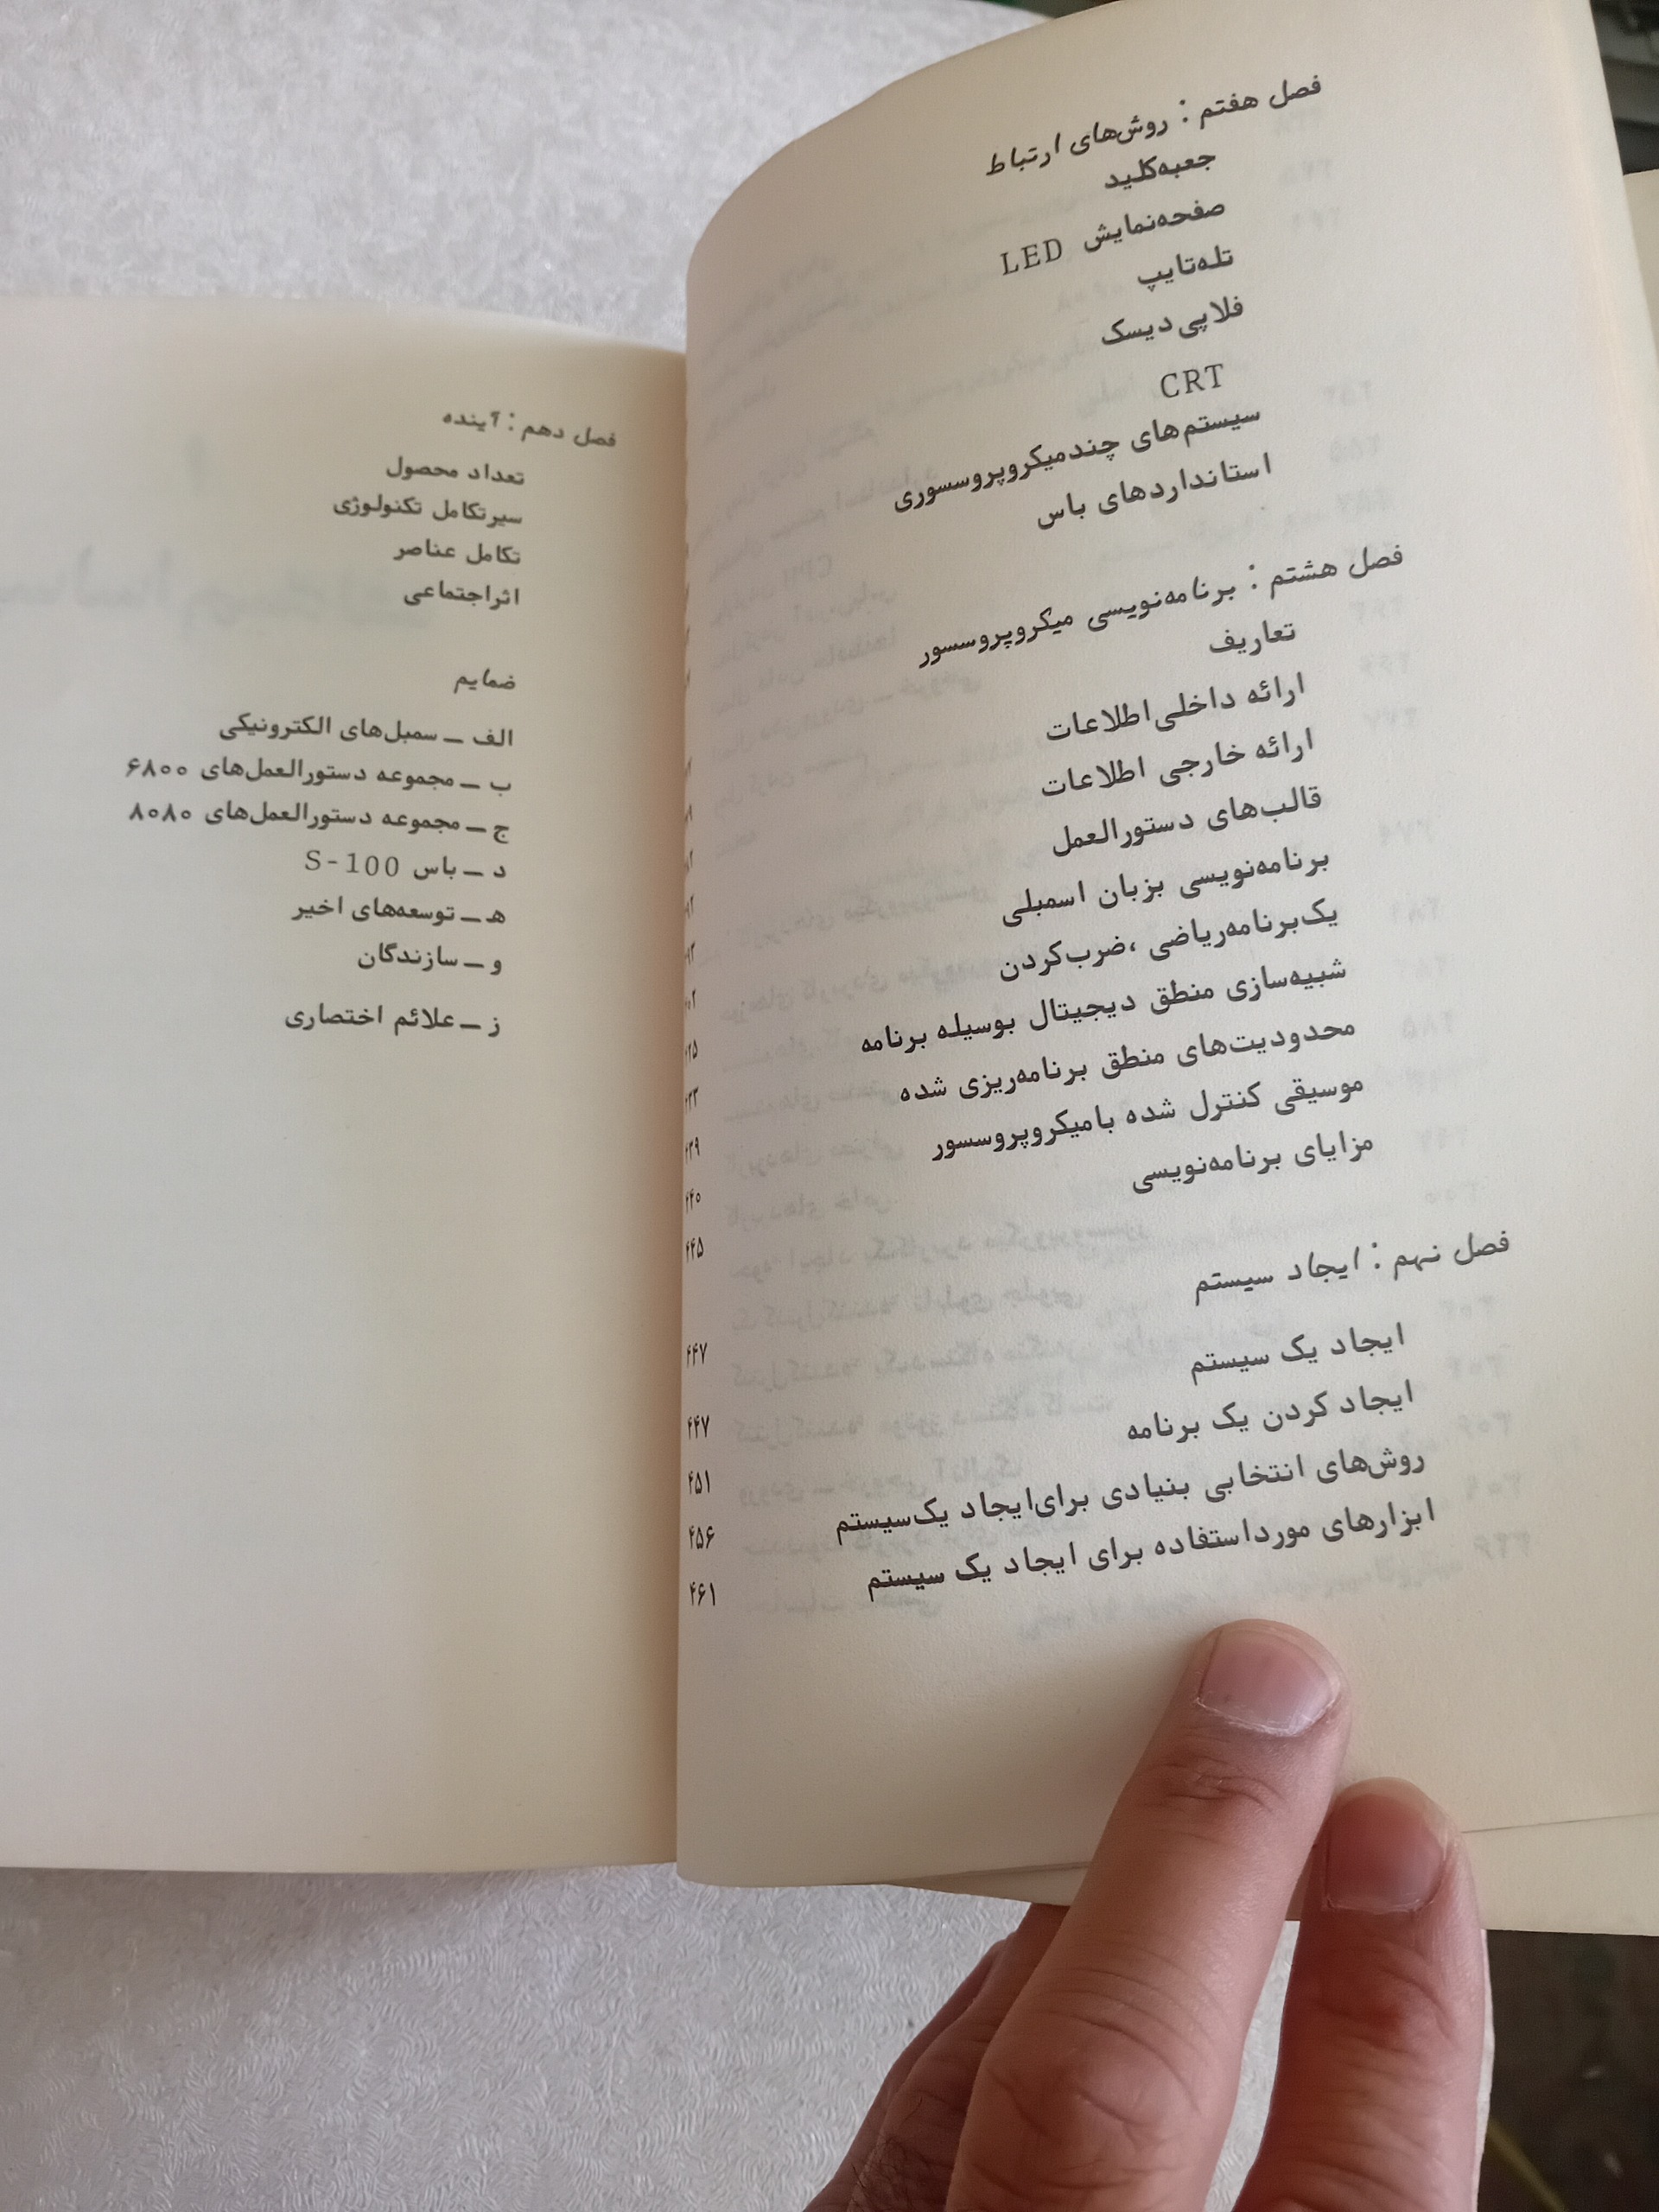 فصل هفتم : روش‌های ارتباط
جعبه‌کلید
صفحه‌نمایش LED
تله‌تایپ
فلاپی‌دیسک
CRT
سیستم‌های چندمیکروپروسسوری
استانداردهای باس
فصل هشتم : برنامه‌نویسی میکروپروسسور
تعاریف
ارائه داخلی‌اطلاعات
ارائه خارجی اطلاعات
قالب‌های دستورالعمل
برنامه‌نویسی بزبان اسمبلی
یک‌برنامه‌ریاضی ،ضرب‌کردن
شبیه‌سازی منطق دیجیتال بوسیله برنامه
محدودیت‌های منطق برنامه‌ریزی شده
موسیقی کنترل شده بامیکروپروسسور
مزایای برنامه‌نویسی ۴۴۵
فصل نهم : ایجاد سیستم ۴۴۷
ایجاد یک سیستم ۴۴۷
ایجاد کردن یک برنامه ۴۵۱
روش‌های انتخابی بنیادی برای‌ایجاد یک‌سیستم ۴۵۶
ابزارهای مورداستفاده برای ایجاد یک سیستم ۴۶۱
فصل دهم : آینده
تعداد محصول
سیرتکامل تکنولوژی
تکامل عناصر
اثراجتماعی
ضمایم
الف ــ سمبل‌های الکترونیکی
ب ــ مجموعه دستورالعمل‌های ۶۸۰۰
ج ــ مجموعه دستورالعمل‌های ۸۰۸۰
د ــ باس S-100
هـ ــ توسعه‌های اخیر
و ــ سازندگان
ز ــ علائم اختصاری